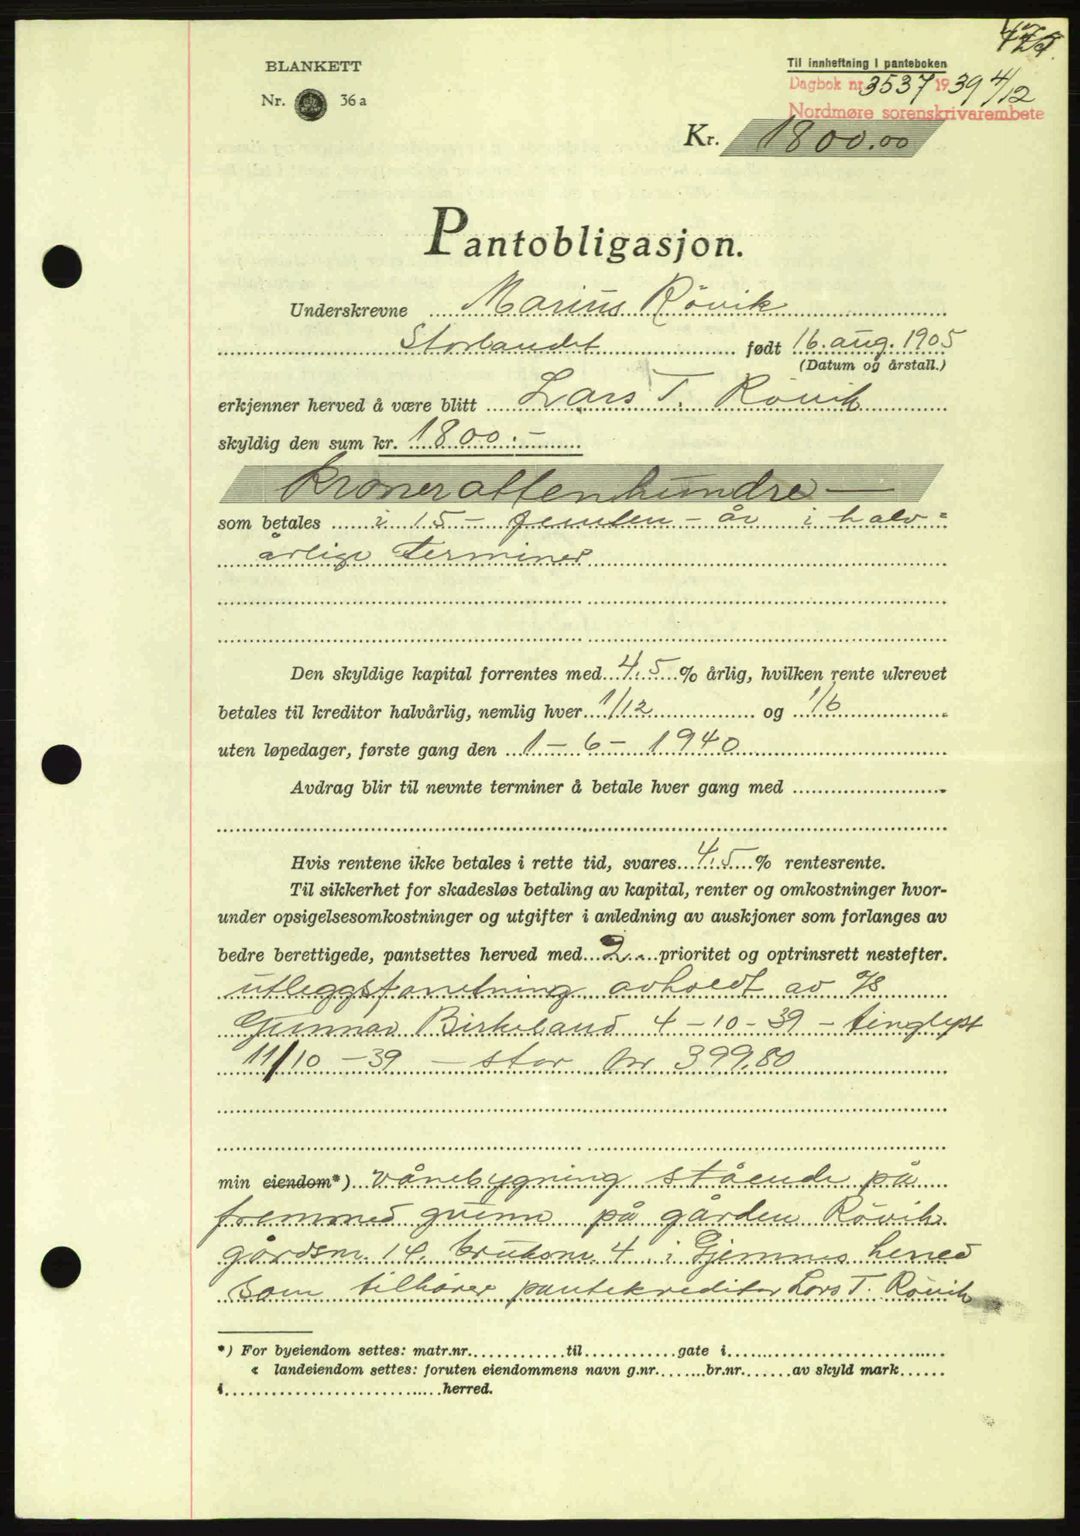 BLANKETT
Nr. 36 a
Til innheftning i panteboken
Dagbok nr. 3537 1939 4/12
Nordmøre sorenskrivarembete
Kr. 1800.00
Pantobligasjon.
Underskrevne Marius Røvik
Storlandet født 16. aug. 1905
(Datum og årstall.)
erkjenner herved å være blitt Lars T. Røvik
skyldig den sum kr. 1800:-
Kroner attenhundre —
som betales i 15 - femten - år i halv=
årlige terminer
Den skyldige kapital forrentes med 4.5 % årlig, hvilken rente ukrevet
betales til kreditor halvårlig, nemlig hver 1/12 og 1/6
uten løpedager, første gang den 1 - 6 - 1940
Avdrag blir til nevnte terminer å betale hver gang med
Hvis rentene ikke betales i rette tid, svares 4.5 % rentesrente.
Til sikkerhet for skadesløs betaling av kapital, renter og omkostninger hvor-
under opsigelsesomkostninger og utgifter i anledning av auskjoner som forlanges av
bedre berettigede, pantsettes herved med 2 prioritet og optrinsrett nestefter.
utleggsforretning avholdt av
Gunnar Birkeland 4 - 10 - 39 - tinglyst
11/10 - 39 - stor kr 399.80
min eiendom*) vånebygning stående på
fremmed grunn på gården Røvik
gårdsnr. 14. bruksnr. 4 i Gjemnes herred
som tilhører pantekreditor Lars T. Røvik
*) For byeiendom settes: matr.nr. til gate i
« landeiendom settes: foruten eiendommens navn g.nr. br.nr. av skyld mark
i herred.